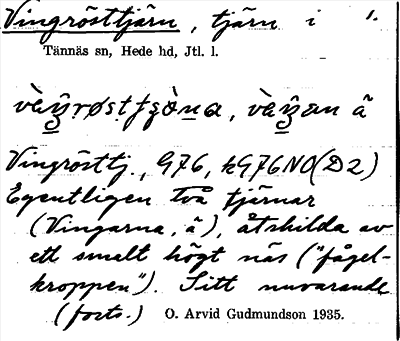 Vingrösttjärn, tjärn i 1.
Tännäs sn, Hede hd, Jtl. l.
Vingrösttj., G76, kG76NO(D2)
Egentligen två tjärnar
(Vingarna, ä), åtskilda av
ett smalt högt näs ("fågel-
kroppen"). Sitt nuvarande
(forts.) O. Arvid Gudmundson 1935.